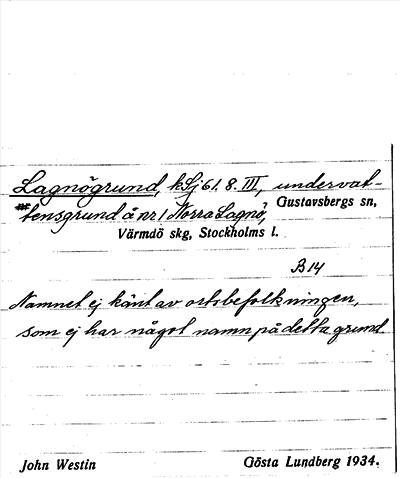 Lagnögrund, kSj 61. 8. III, undervat-
tensgrund å nr 1 Norra Lagnö, Gustavsbergs sn,
Värmdö skg, Stockholms l.
B14
Namnet ej känt av ortsbefolkningen,
som ej har något namn på detta grund.
John Westin Gösta Lundberg 1934.